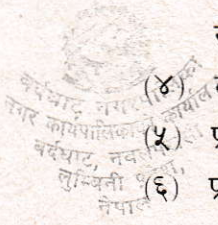 (४)
बर्दघाट नगरपालिका
नगर कार्यपालिकाको कार्यालय
(५) प्
बर्दघाट, नवलपरासी
लुम्बिनी प्रदेश,
(६) प्
नेपाल